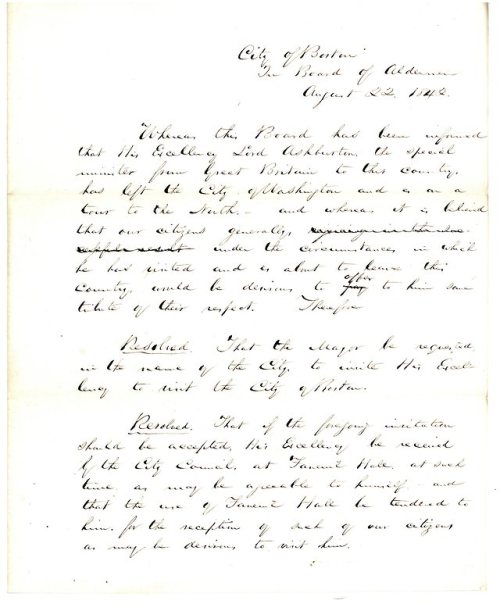 City of Boston
In Board of Aldermen
August 22, 1842.
Whereas this Board has been informed
that His Excellency Lord Ashburton, the special
minister from Great Britain to this country,
has left the City of Washington and is on a
tour to the North, - and whereas it is believed
that our citizens generally,
under the circumstances in which
he has visited and is about to leave this
country, would be desirous to offer to him some
tribute of their respect. Therefore
Resolved. That the Mayor be requested
in the name of the City, to invite His Excel-
lency to visit the City of Boston.
Resolved. That if the foregoing invitation
should be accepted, His Excellency be received
by the City Council, at Faneuil Hall, at such
time as may be agreeable to himself - and
that the use of Faneuil Hall be tendered to
him, for the reception of such of our citizens
as may be desirous to visit him.